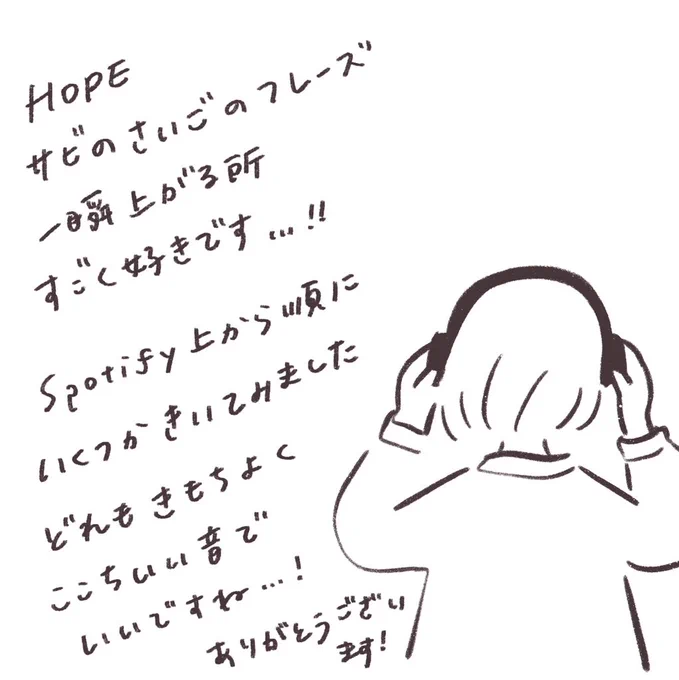 HOPE
サビのさいごのフレーズ
一瞬上がる所
すごく好きです...!!
Spotify上から順に
いくつかきいてみました
どれもきもちよく
ここちいい音で
いいですね...!
ありがとうござい
ます!